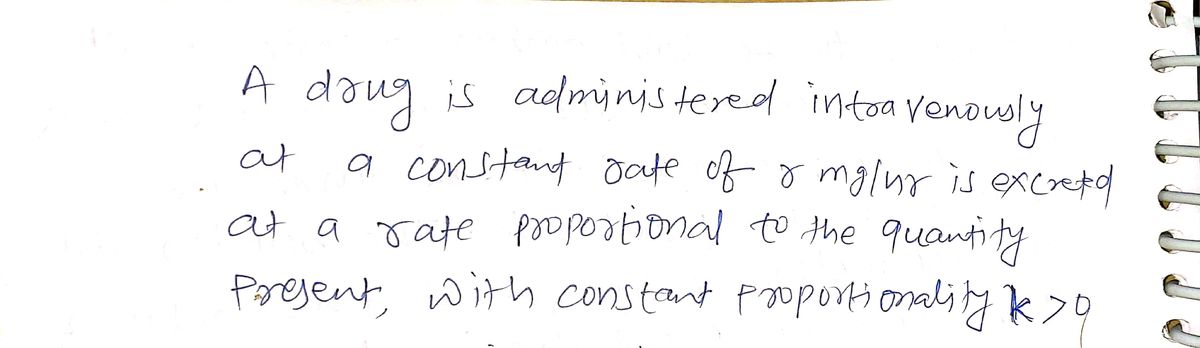 A drug is administered intravenously
at a constant rate of r mg/hr is excreted
at a rate proportional to the quantity
Present, with constant proportionality k>0